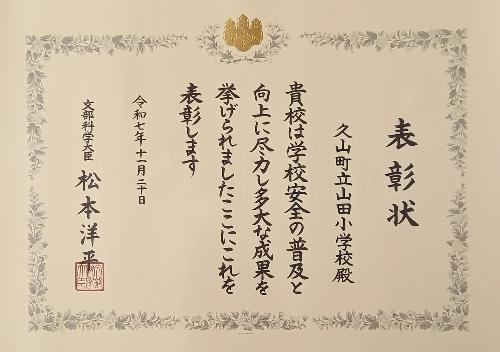 表彰状
久山町立山田小学校殿
貴校は学校安全の普及と
向上に尽力し多大な成果を
挙げられましたここにこれを
表彰します
令和七年十一月二十日
文部科学大臣 松本洋平